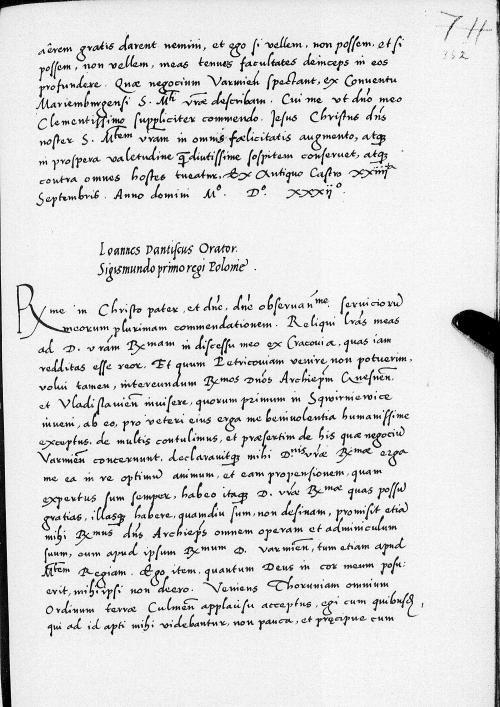 74
352
aërem gratis darent nemini, et ego si vellem, non possem, et si
possem, non vellem, meas tenues facultates deinceps in eos
profundere. Quæ negocium Varmień spectant, ex Conventu
Mariemburgensi S. M.ti vr̃æ describam. Cui me ut dño meo
Clementissimo suppliciter commendo. Jesus Christus dñs
noster S. M.tem vr̃am in omnis fælicitatis augmento, atq3
in prospera valetudine q̃ diutissime sospitem conservet, atq3
contra omnes hostes tueatur, Ex Antiquo Castro XXIIII.a
Septembris. Anno domini M.o D.o XXXII.o
Ioannes Dantiscus Orator.
Sigismundo primo regi Poloniæ.
Rx me in Christo pater, et dñe, dñe observañ.me serviciorũ
meorum plurimam commendationem. Reliqui lr̃as meas
ad D. vr̃am Rxmam in discessu meo ex Cracovia, quas iam
redditas esse reor. Et quum Petricoviam venire non potuerim,
volui tamen, intereundum Rxmos Dños Archiep̃m Gnesneñ.
et Vladislavień invisere, quorum primum in Sqwirniewice
inveni, ab eo, pro veteri eius erga me benivolentia humanissime
exceptus, de multis contulimus, et præsertim de his quæ negociũ
Varmień concernunt, declaravitq3 mihi D.nis vr̃æ Rxmæ erga
me ea in re optimũ animum, et eam propensionem, quam
expertus sum semper, habeo itaq3 D. vr̃æ Rxmæ quas possũ
gratias, illasq3 habere, quamdiu sum, non desinam, promisit etiã
mihi Rxmus dñs Archiep̃s omnem operam et adminiculum
suum, cum apud ipsum Rxmum D. Varmień, tum etiam apud
M.tem Regiam. Ego item, quantum Deus in cor meum posu:
erit, mihi ipsi non deero. Veniens Thoruniam omnium
Ordinum terræ Culmeñ applausu acceptus, egi cum quibusdã,
qui ad id apti mihi videbantur, non pauca, et præcipue cum